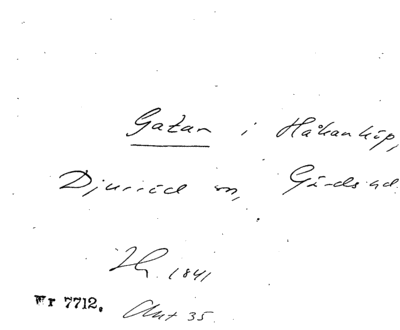 Gatan i Håkanköp,
Djurröd sn, Gärds hd.
1841
Nr 7712. Akt 35